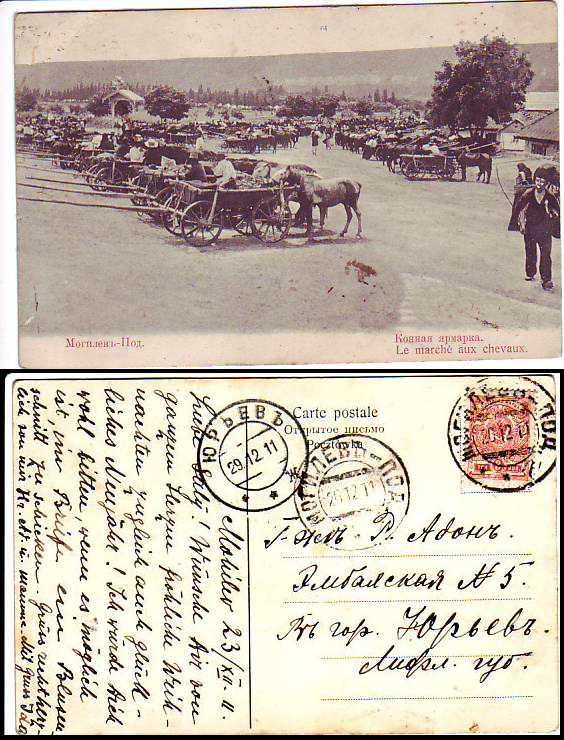 Могилевъ-Под.
Конная ярмарка.
Le marché aux chevaux.
Carte postale
Открытое письмо
Pocztówka
ЮРЬЕВЪ
29.12.11
МОГИЛЕВЪ-ПОД.
26.12.11
МОГИЛЕВЪ-ПОД.
26.12.11
Г-жѣ Р. Адонъ.
Эмбахская № 5.
Въ гор. Юрьевъ.
Лифл. губ.
Mohilew 23/XII. 11
Liebe Selly! Wünsche Dir von
ganzem Herzen fröhliche Weih-
nachten zugleich auch glück-
liches Neujahr! Ich würde Dich
wohl bitten, wenn es möglich
ist, im Brief ein Blusen
schnitt zu schicken. Gruss recht herz-
lich von mir Mit Gruss Ida